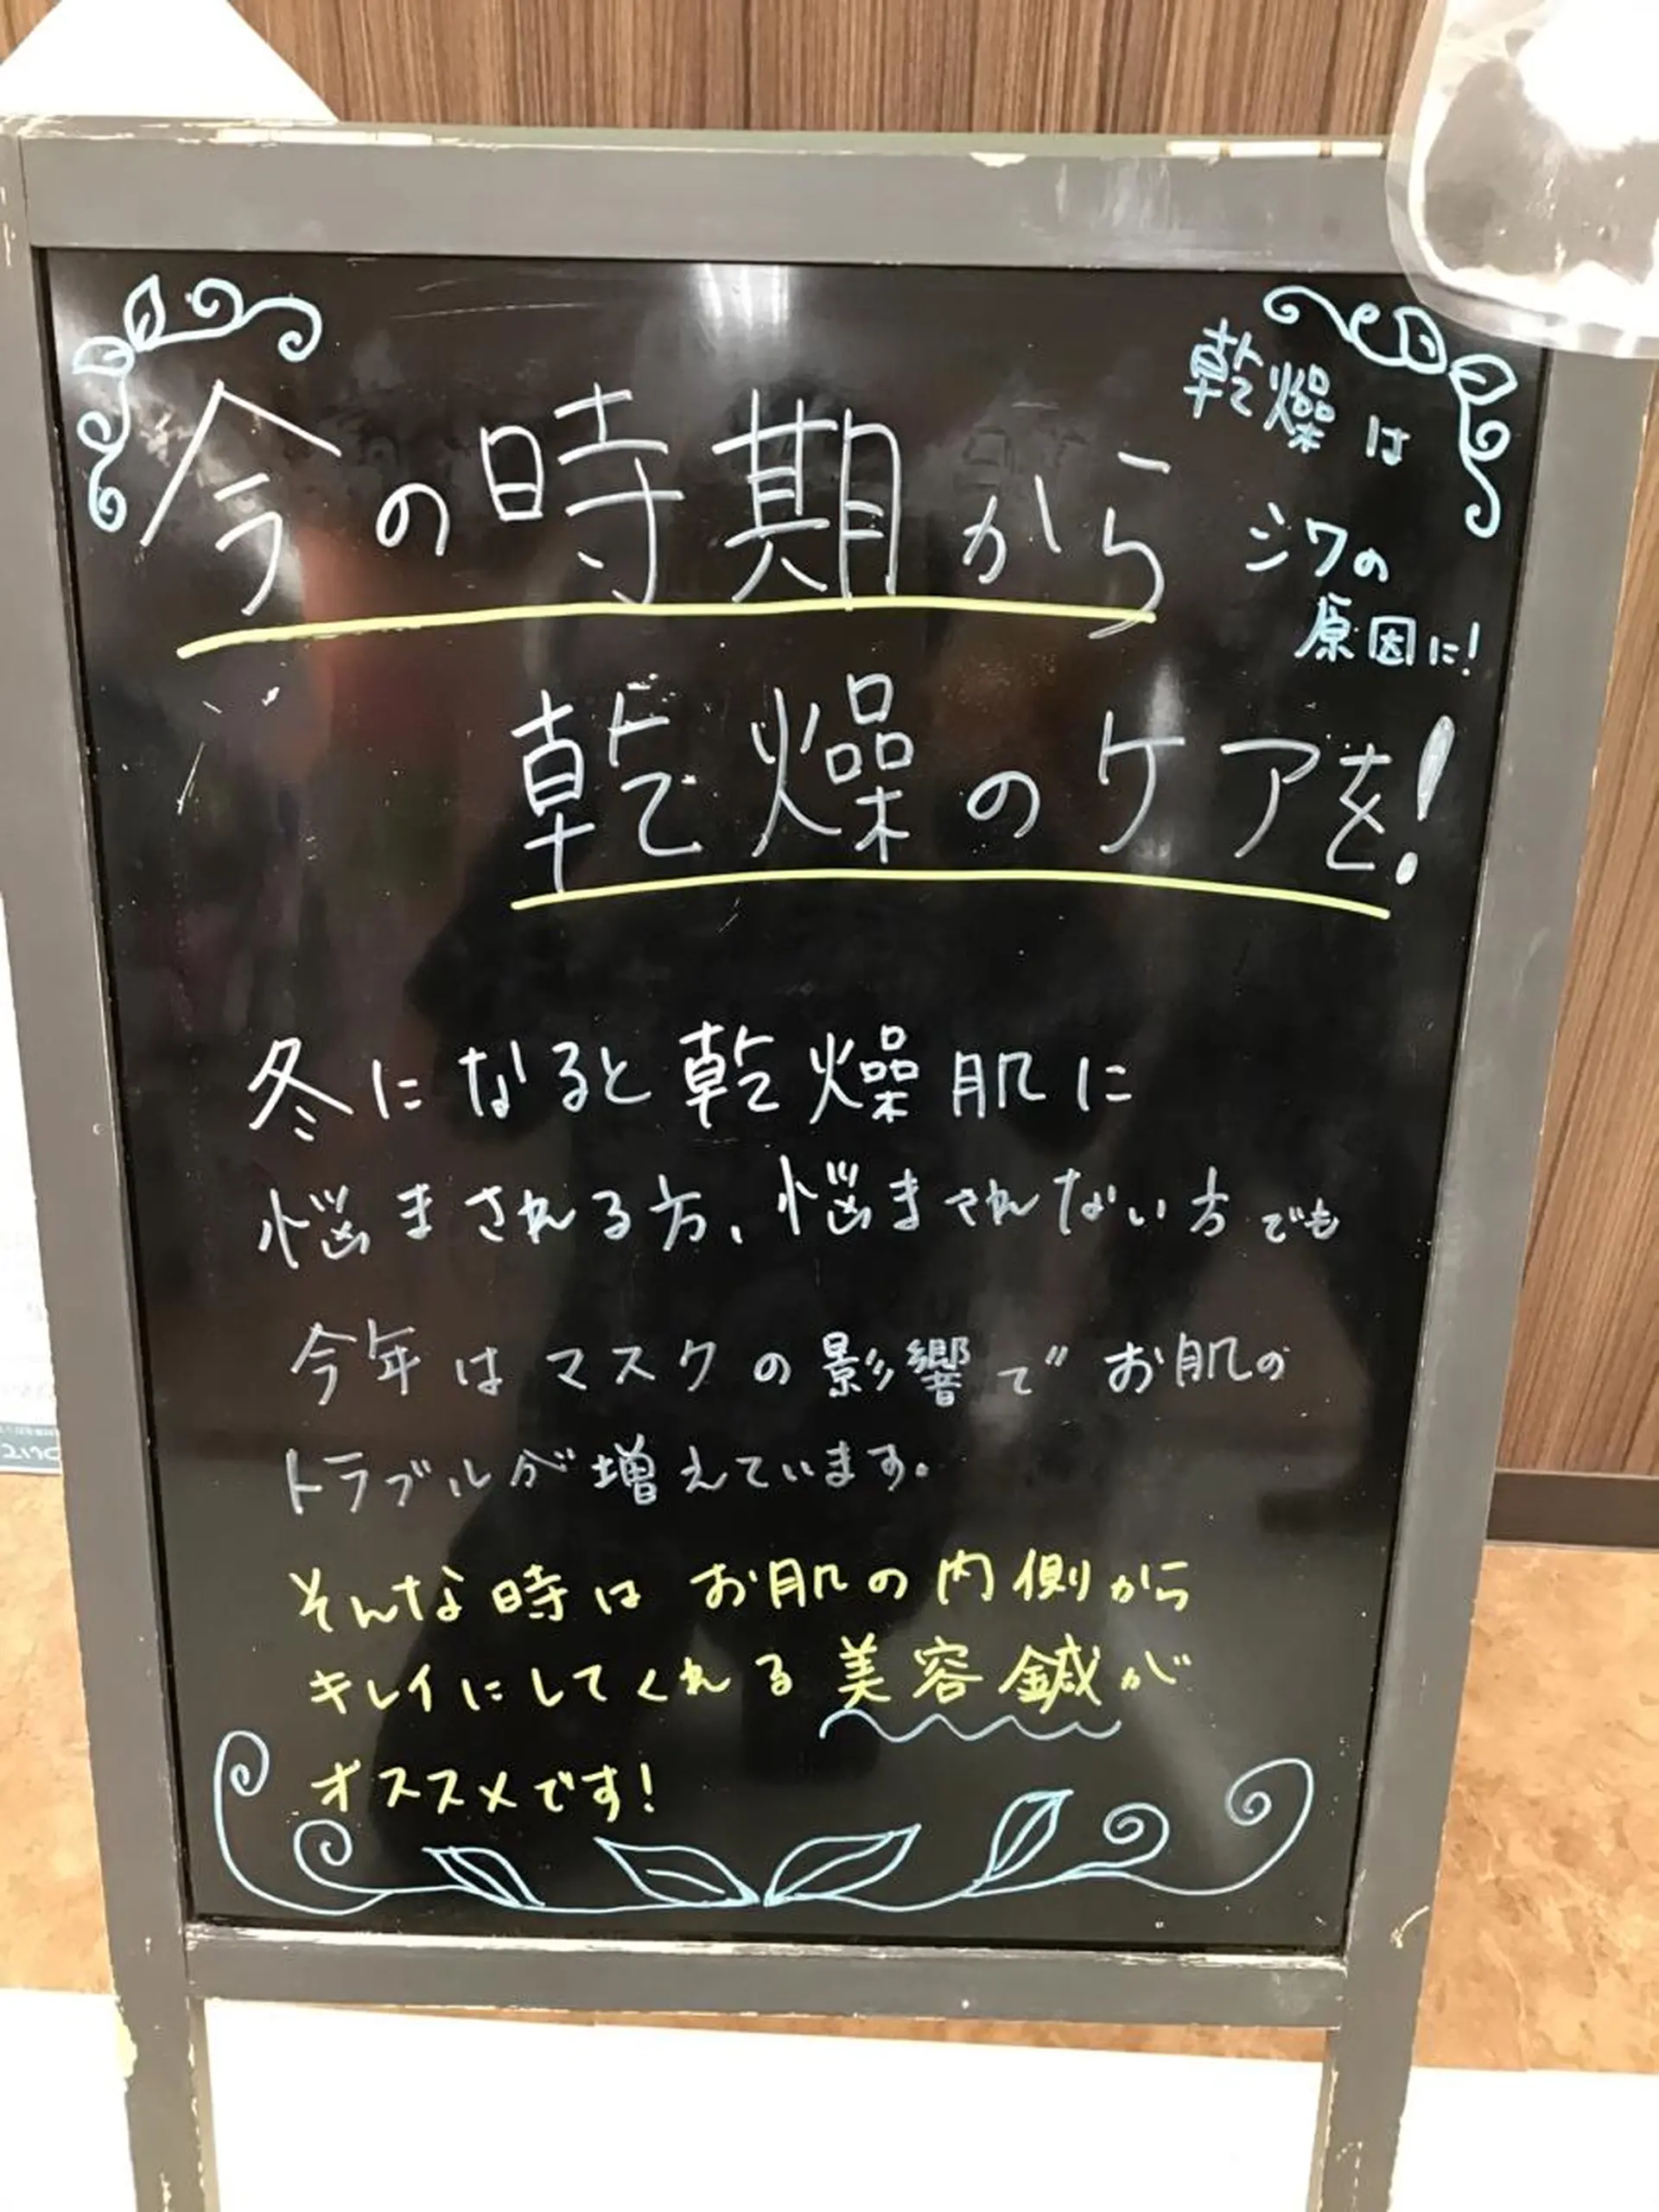 今の時期から
乾燥のケアを!
乾燥は
シワの
原因に!
冬になると乾燥肌に
悩まされる方、悩まされない方でも
今年はマスクの影響でお肌の
トラブルが増えています。
そんな時はお肌の内側から
キレイにしてくれる美容鍼が
オススメです!
ついて